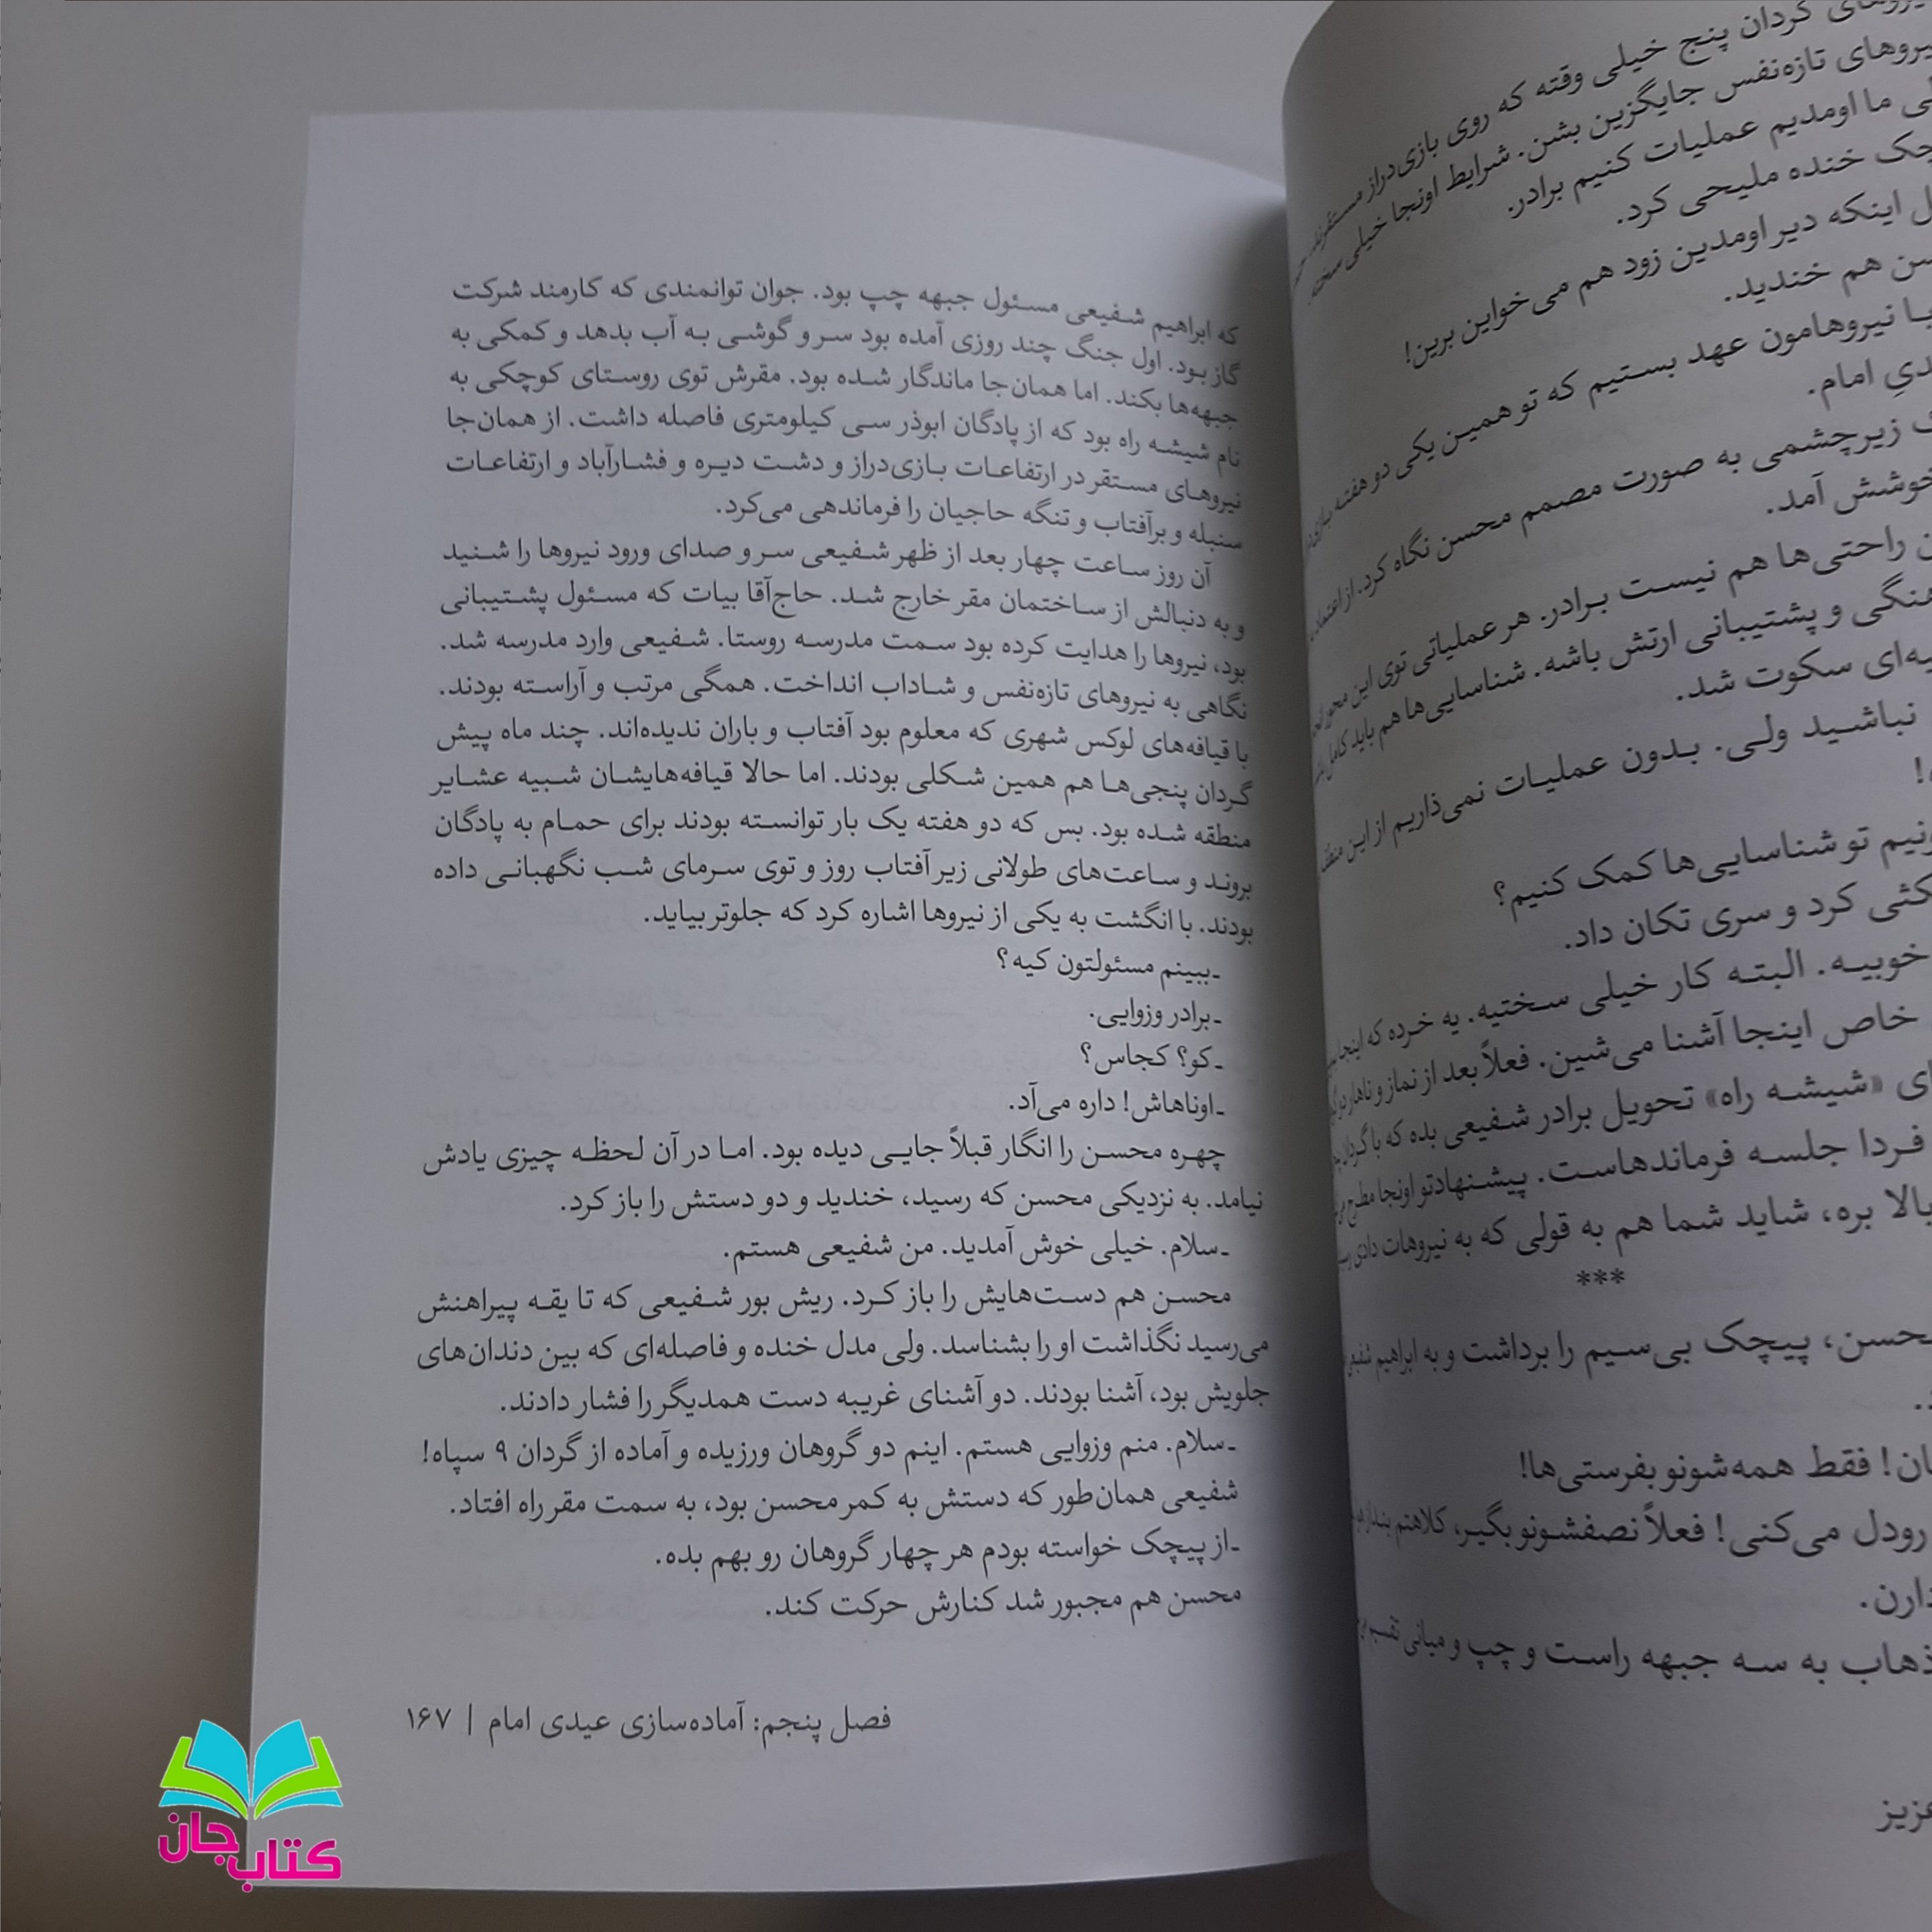 گردان پنج خیلی وقته که روی بازی‌دراز
نیروهای تازه‌نفس جایگزین بشن. شرایط اونجا خیلی سخته.
ما اومدیم عملیات کنیم برادر.
خنده ملیحی کرد.
اینکه دیر اومدین زود هم می‌خواین برین!
هم خندید.
نیروهامون عهد بستیم که تو همین یکی دو هفته
امام.
زیرچشمی به صورت مصمم محسن نگاه کرد. از
خوشش آمد.
راحتی‌ها هم نیست برادر. هر عملیاتی توی این محور
و پشتیبانی ارتش باشه. شناسایی‌ها هم باید کامل
سکوت شد.
نباشید ولی. بدون عملیات نمی‌ذاریم از این
تو شناسایی‌ها کمک کنیم؟
کرد و سری تکان داد.
خوبیه. البته کار خیلی سختیه. یه خرده که اینجا
خاص اینجا آشنا می‌شین. فعلاً بعد از نماز و ناهار
«شیشه راه» تحویل برادر شفیعی بده که با گردان
فردا جلسه فرماندهاست. پیشنهادتو اونجا مطرح
بالا بره، شاید شما هم به قولی که به نیروهات دادی
***
محسن، پیچک بی‌سیم را برداشت و به ابراهیم شفیعی
فقط همه‌شونو بفرستی‌ها!
رودل می‌کنی! فعلاً نصفشونو بگیر، کلاهتم بنداز
به سه جبهه راست و چپ و میانی تقسیم
که ابراهیم شفیعی مسئول جبهه چپ بود. جوان توانمندی که کارمند شرکت
گاز بود. اول جنگ چند روزی آمده بود سر و گوشی به آب بدهد و کمکی به
جبهه‌ها بکند. اما همان‌جا ماندگار شده بود. مقرش توی روستای کوچکی به
نام شیشه راه بود که از پادگان ابوذر سی کیلومتری فاصله داشت. از همان‌جا
نیروهای مستقر در ارتفاعات بازی‌دراز و دشت دیره و فشارآباد و ارتفاعات
سنبله و برآفتاب و تنگه حاجیان را فرماندهی می‌کرد.
آن روز ساعت چهار بعد از ظهر شفیعی سر و صدای ورود نیروها را شنید
و به دنبالش از ساختمان مقر خارج شد. حاج‌آقا بیات که مسئول پشتیبانی
بود، نیروها را هدایت کرده بود سمت مدرسه روستا. شفیعی وارد مدرسه شد.
نگاهی به نیروهای تازه‌نفس و شاداب انداخت. همگی مرتب و آراسته بودند.
با قیافه‌های لوکس شهری که معلوم بود آفتاب و باران ندیده‌اند. چند ماه پیش
گردان پنجی‌ها هم همین شکلی بودند. اما حالا قیافه‌هایشان شبیه عشایر
منطقه شده بود. بس که دو هفته یک بار توانسته بودند برای حمام به پادگان
بروند و ساعت‌های طولانی زیر آفتاب روز و توی سرمای شب نگهبانی داده
بودند. با انگشت به یکی از نیروها اشاره کرد که جلوتر بیاید.
ـ ببینم مسئولتون کیه؟
ـ برادر وزوایی.
ـ کو؟ کجاس؟
ـ اوناهاش! داره می‌آد.
چهره محسن را انگار قبلاً جایی دیده بود. اما در آن لحظه چیزی یادش
نیامد. به نزدیکی محسن که رسید، خندید و دو دستش را باز کرد.
ـ سلام. خیلی خوش آمدید. من شفیعی هستم.
محسن هم دست‌هایش را باز کرد. ریش بور شفیعی که تا یقه پیراهنش
می‌رسید نگذاشت او را بشناسد. ولی مدل خنده و فاصله‌ای که بین دندان‌های
جلویش بود، آشنا بودند. دو آشنای غریبه دست همدیگر را فشار دادند.
ـ سلام. منم وزوایی هستم. اینم دو گروهان ورزیده و آماده از گردان ۹ سپاه!
شفیعی همان‌طور که دستش به کمر محسن بود، به سمت مقر راه افتاد.
ـ از پیچک خواسته بودم هر چهار گروهان رو بهم بده.
محسن هم مجبور شد کنارش حرکت کند.
فصل پنجم: آماده‌سازی عیدی امام | ۱۶۷
کتاب جان